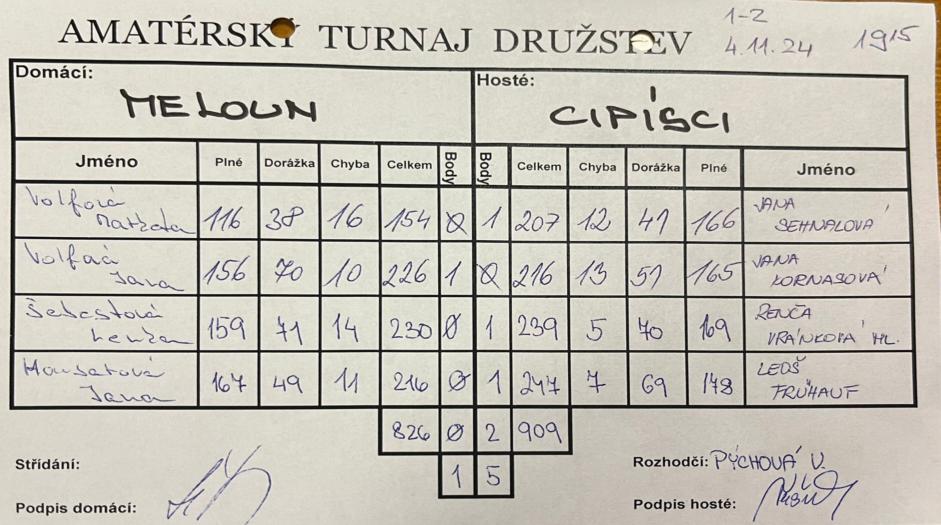 AMATÉRSKÝ TURNAJ DRUŽSTEV
1-2
4.11.24 1915
Domácí: Hosté:
MELOUN CIPÍSCI
Jméno Plné Dorážka Chyba Celkem Body Body Celkem Chyba Dorážka Plné Jméno
Volfová Markéta 116 38 16 154 0 1 207 12 41 166 JANA SEHNALOVÁ
Volfová Jana 156 70 10 226 1 0 216 13 51 165 JANA KORNASOVÁ
Šebestová Lenka 159 71 14 230 0 1 239 5 70 169 RENČA VRÁNKOVÁ ML.
Jana 167 49 11 216 0 1 247 7 69 178 LEOŠ FRÜHAUF
826 0 2 909
1 5
Střídání:
Rozhodčí: PÝCHOVÁ V.
Podpis domácí:
Podpis hosté: